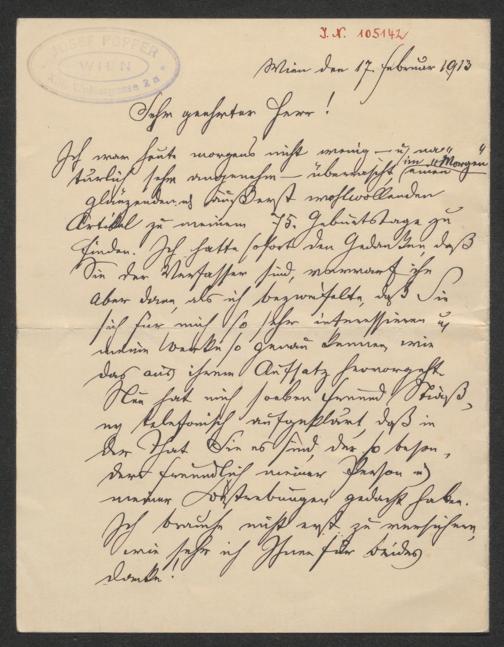 I. N. 105142
JOSEF POPPER
WIEN
Wien den 17. Februar 1913
Sehr geehrter Herr!
Ich war heute morgens nicht wenig – u. na-
türlich sehr angenehm – überrascht im "Morgen" einen
glänzenden u. äußerst wohlwollenden
Artikel zu meinem 75. Geburtstage zu
finden. Ich hatte sofort den Gedanken, daß
Sie der Verfasser sind, verwarf ihn
aber dann, als ich bezweifelte, daß Sie
sich für mich so sehr interessieren u.
meine Werke so genau kennen, wie
das aus ihrem Aufsatz hervorgeht.
Nun hat mich soeben Freund
telefonisch aufgeklärt, daß in
der That Sie es sind, der so beson-
ders freundlich meiner Person u.
meiner Bestrebungen gedacht haben.
Ich brauche nicht erst zu versichern,
wie sehr ich Ihnen für beides
danke!